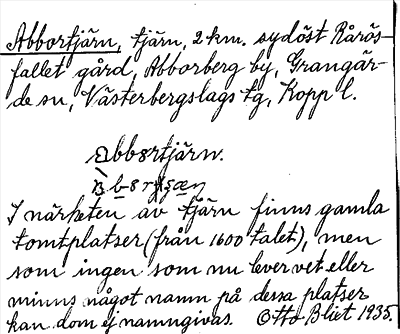 Abbortjärn, tjärn, 2 km. sydöst Rårås-
fallet gård, Abborberg by, Grangär-
de sn, Västerbergslags tg, Kopp l.
Abbortjärn.
I närheten av tjärn finns gamla
tomtplatser (från 1600 talet), men
som ingen som nu lever vet eller
minns något namn på dessa platser
kan dom ej namngivas. Otto Bliet 1935.